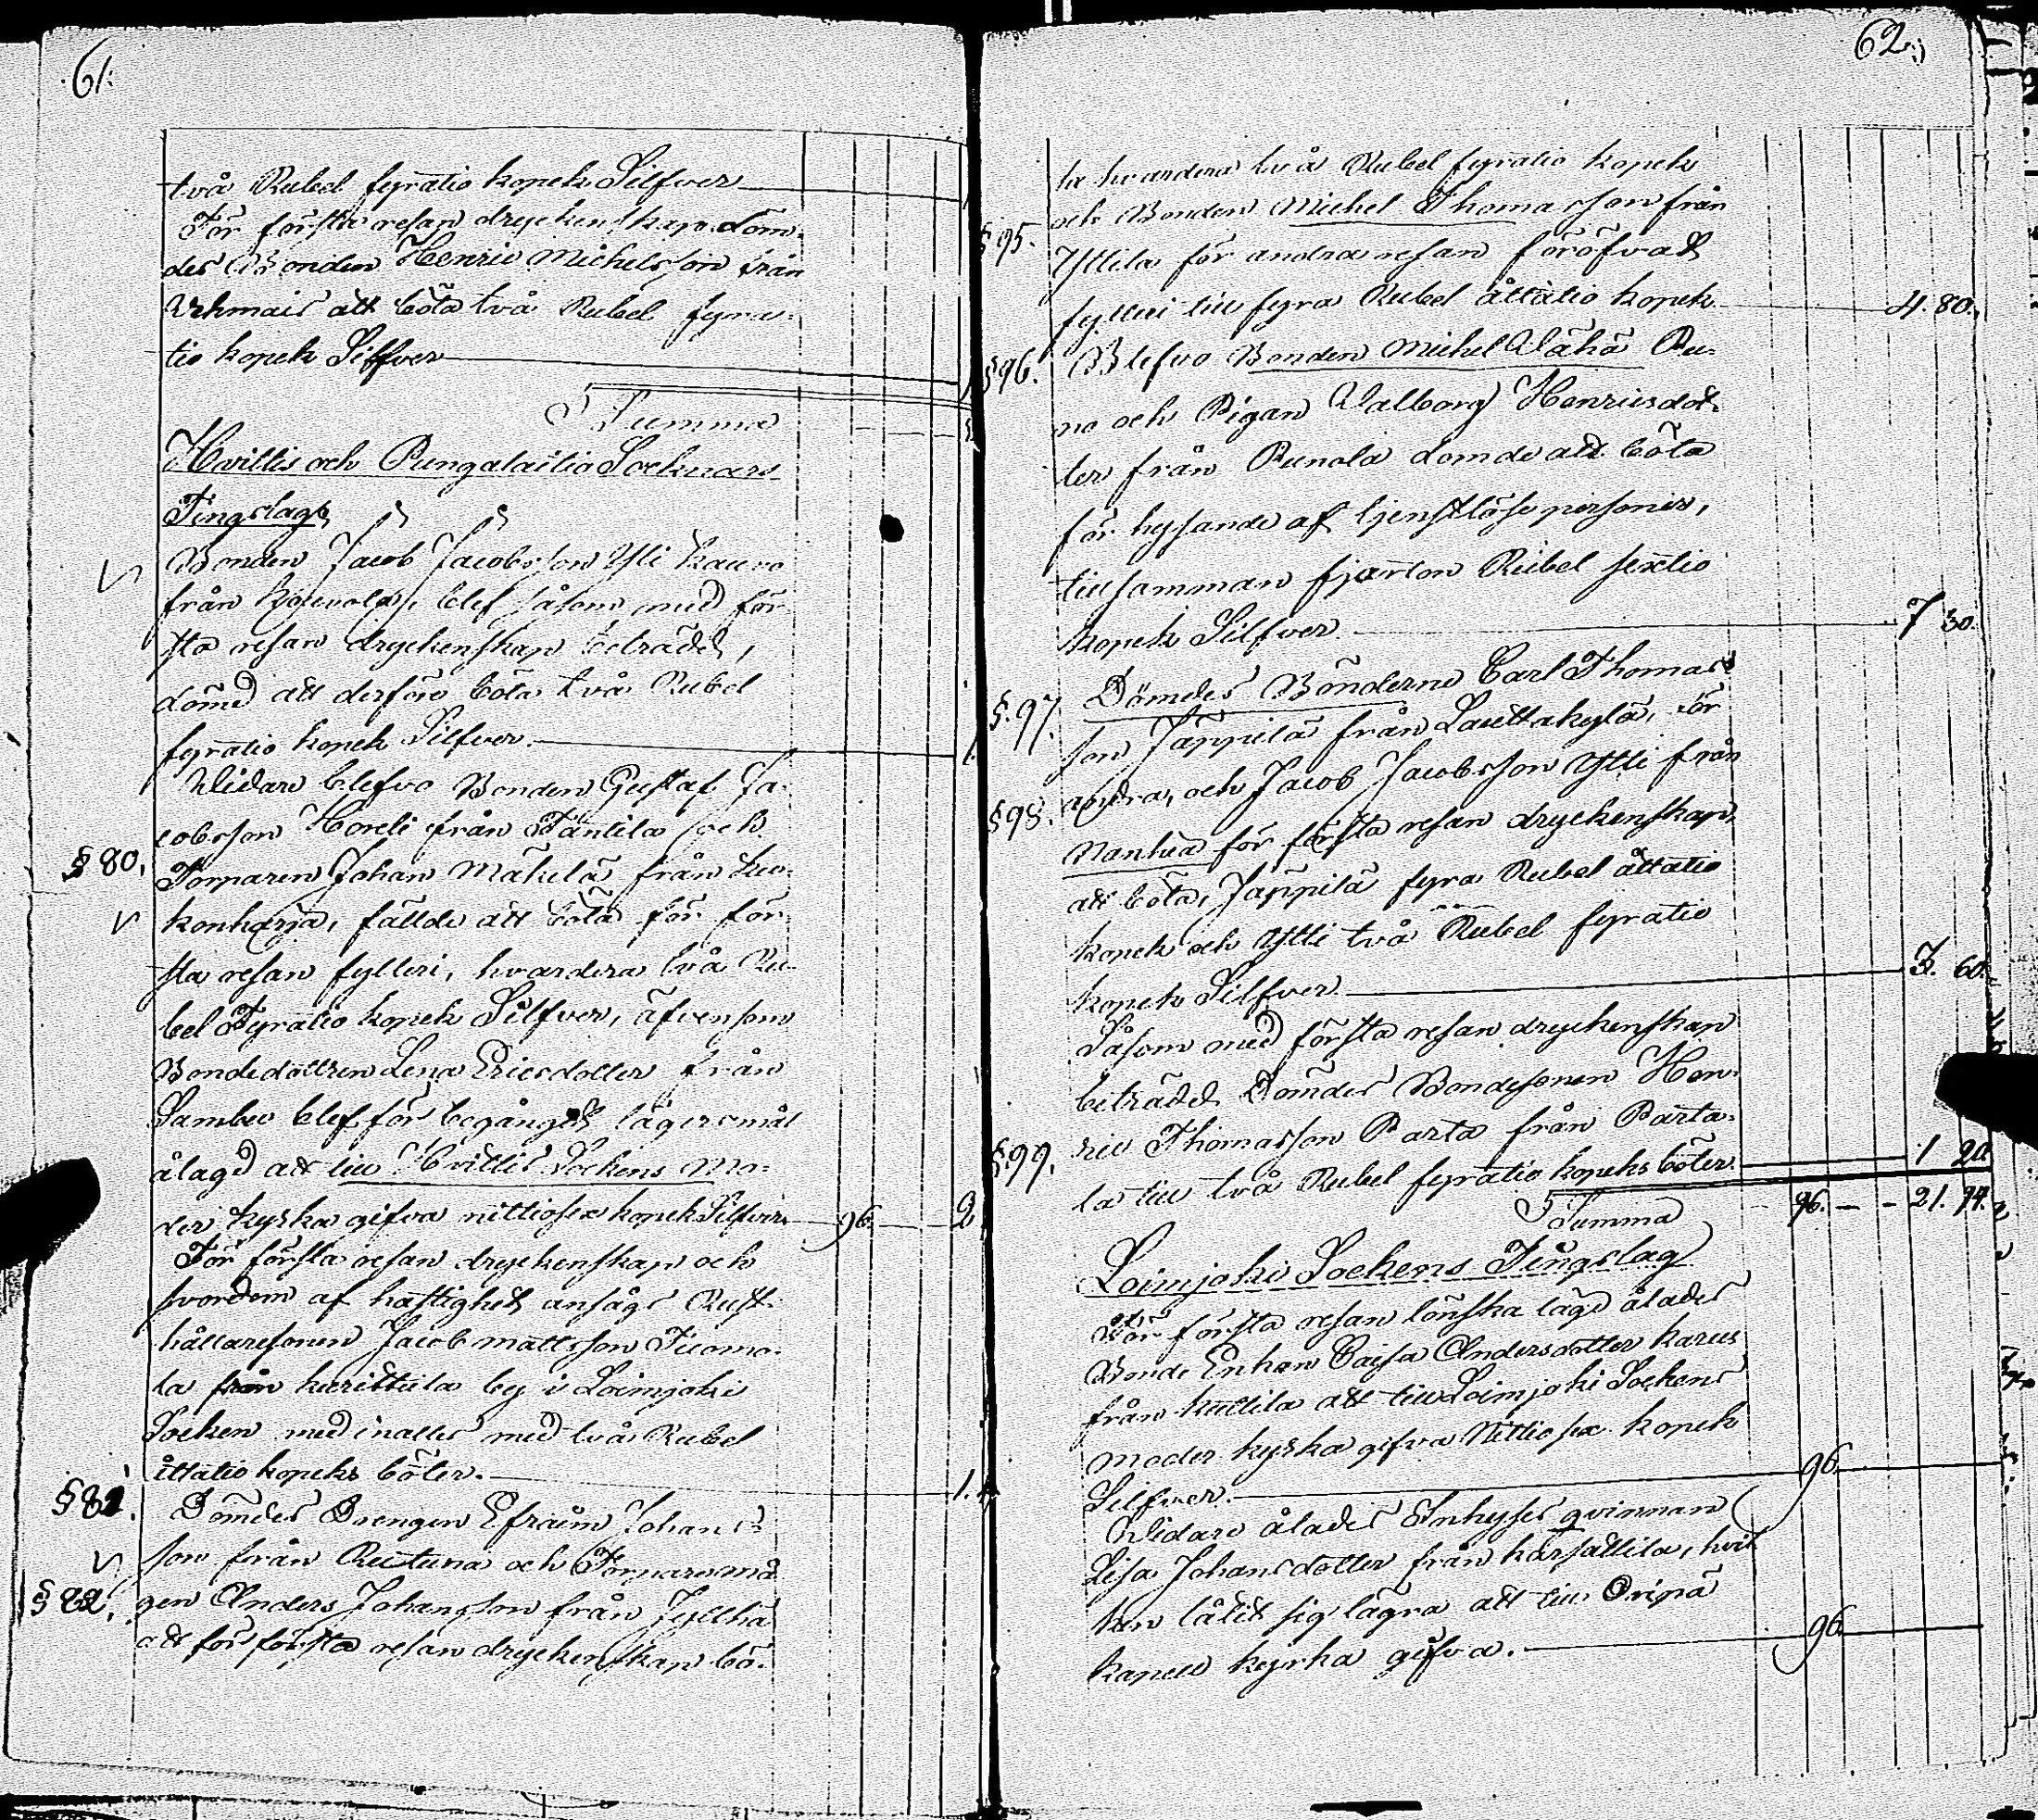 61.
två Rubel fyratio kopek Silfver
För första resan dryckenskap döm-
des Bonden Henric Michelsson från
Urhmais att böta två Rubel fyra-
tio kopek Silfver
Summa
Hvittis och Pungalaitio Socknars
Tingslag
Bonden Jacob Jacobsson Yli Kauro
från blef såsom med för-
sta resan dryckenskap beträdd,
dömd att derföre böta två Rubel
fyratio kopek Silfver. 1.
Vidare blefvo Bonden Gustaf Ja-
cobsson Horeli från Täntila och
§ 80. Torparen Johan Mäkelä från Kuo-
konharja, fällde att böta för för-
sta resan fylleri, hvardera två Ru-
bel Fyratio kopek Silfver, äfvensom
Bondedottren Lena Ericsdotter från
Sambu blef för begånget lägersmål
ålagd att till Hvittis Sockens Mo-
der kyrka gifva nittiosex kopek Silfver 96. 2
För första resan dryckenskap och
svordom af hastighet ansågs Rust-
hållaresonen Jacob Mattsson Tuomo-
la från Kurittula by i Loimjoki
Socken med inalles med två Rubel
åttatio kopeks böter. 1.
§ 81. Dömdes Drengen Efraim Johans-
son från Rutuna och Torparemå-
§ 82. gen Anders Johansson från Jyllhä
att för första resan dryckenskap bö-
62.
ta hvardera två Rubel fyratio kopek
§ 95. och Bonden Michel Thomasson från
Yttila för andra resan föröfvadt
fylleri till fyra Rubel åttatio kopek 4. 80.
§ 96. Blefvo Bonden Michel Vähä Pu-
no och Pigan Valborg Henricsdot-
ter från Punola dömde att böta
för hysande af tjenstlöse personer,
tillsamman fjorton Rubel sextio
kopek Silfver 7 30.
§. 97. Dömdes Bönderne Carl Thomas-
son Jäppilä från Lauttakylä, för
§ 98. andra, och Jacob Jacobsson Ytti från
Nanhia för första resan dryckenskap,
att böta, Jäppilä fyra Rubel åttatio
kopek och Ytti två Rubel fyratio
kopek Silfver 3. 60.
Såsom med första resan dryckenskap
beträdd Dömdes Bondesonen Hen-
§. 99. ric Thomasson Parta från Parta-
la till två Rubel fyratio kopeks böter. 1 20
Summa 96. — - 21. 74.
Loimjoki Sockens Tingslag
För första resan lönska läge ålades
Bonde Enkan Caisa Andersdotter Karus
från Kuttila att till Loimjoki Sockens
moder kyrka gifva Nittiosex kopek
Silfver. 96.
Vidare ålades Inhyses qvinnan
Lisa Johansdotter från Karsattila, hvil-
ken låtit sig lägra att till Oripä
Kapell kyrka gifva. 96.